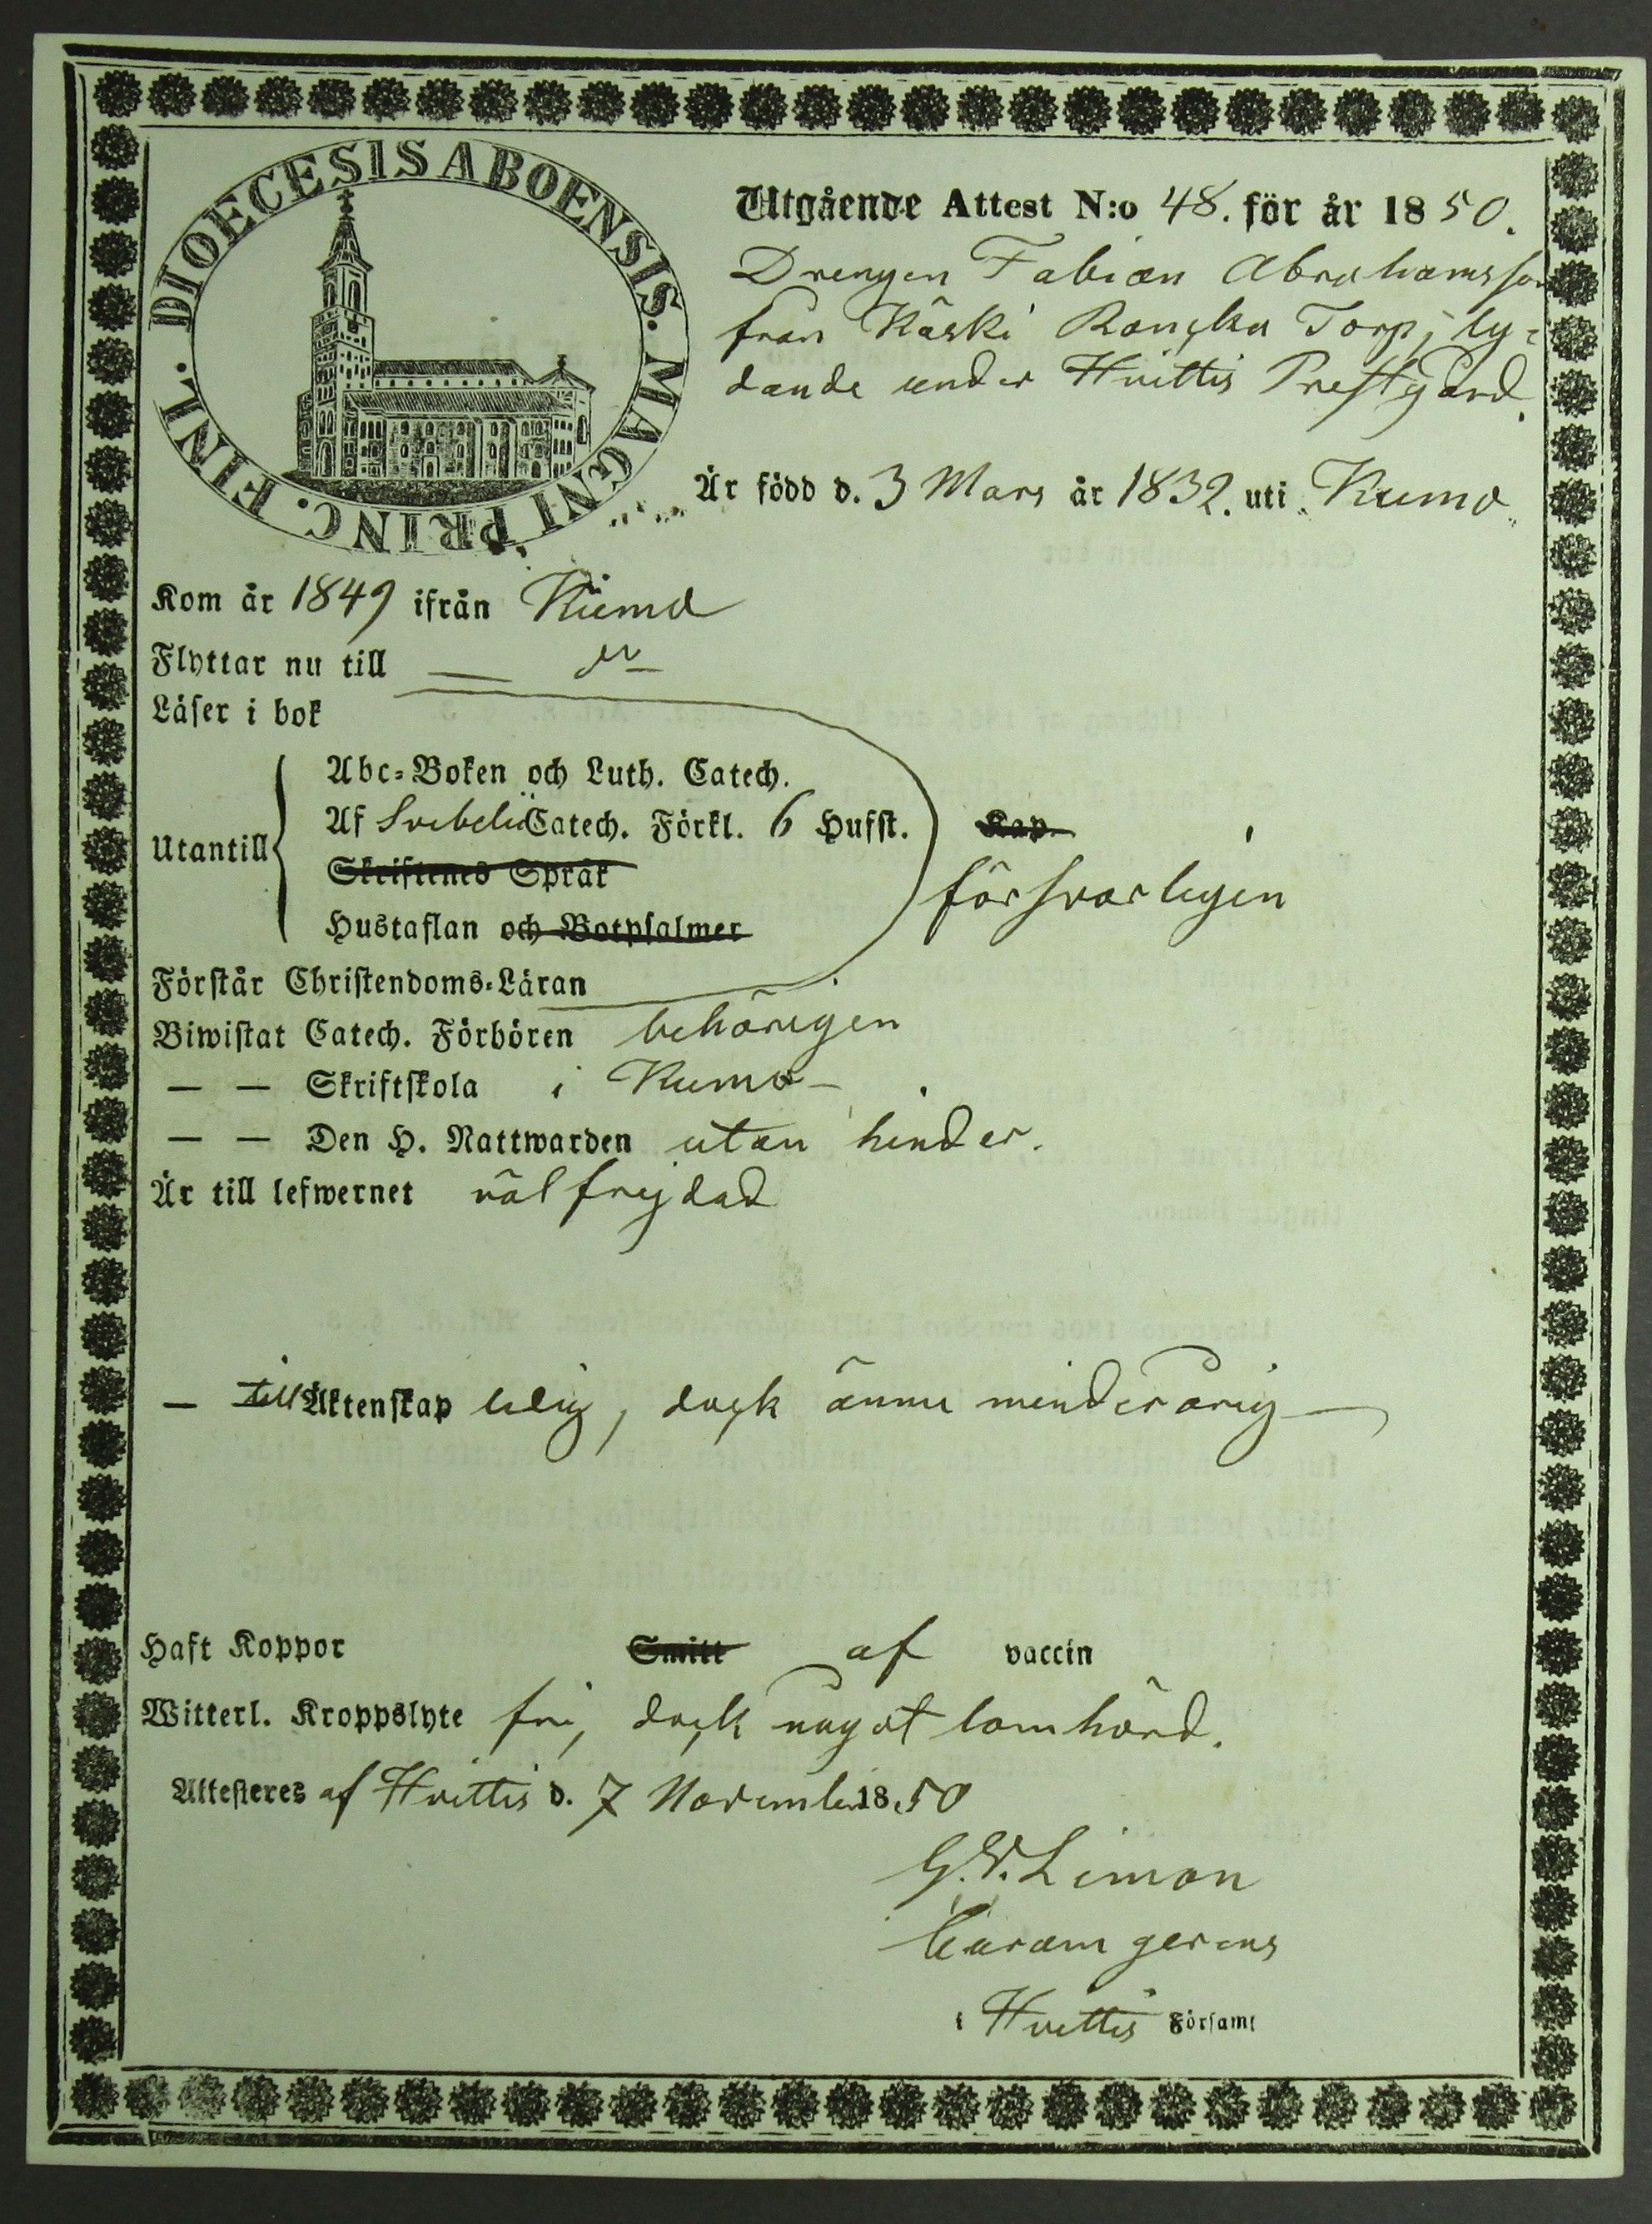 DIOECESIS ABOENSIS. MAGNI PRINC. FINL.
Utgående Attest N:o 48. för år 1850.
Drengen Fabian Abrahamsson
från Käski Rancku Torp, ly=
dande under Hvittis Prestgård.
Är född d. 3 Mars år 1832. uti Kumo
Kom år 1849 ifrån Kumo
Flyttar nu till — d:o —
Läser i bok
Abc=Boken och Luth. Catech.
Utantill
Af Svebelii Catech. Förkl. 6 Hufst. Kap.
Skriftenes Språk
försvarligen
Hustaflan och Botpsalmer
Förstår Christendoms=Läran
Biwistat Catech. Förhören behörigen
— — Skriftskola i Kumo —
— — Den H. Nattwarden utan hinder.
Är till lefwernet väl frejdad
— till Äktenskap ledig, dock ännu minderårig —
Haft Koppor Smitt af vaccin
Witterl. Kroppslyte fri, dock något lomhörd.
Attesteres af Hvittis d. 7 November 1850
G. W. Limon
Curam gerens
i Hvittis Församl